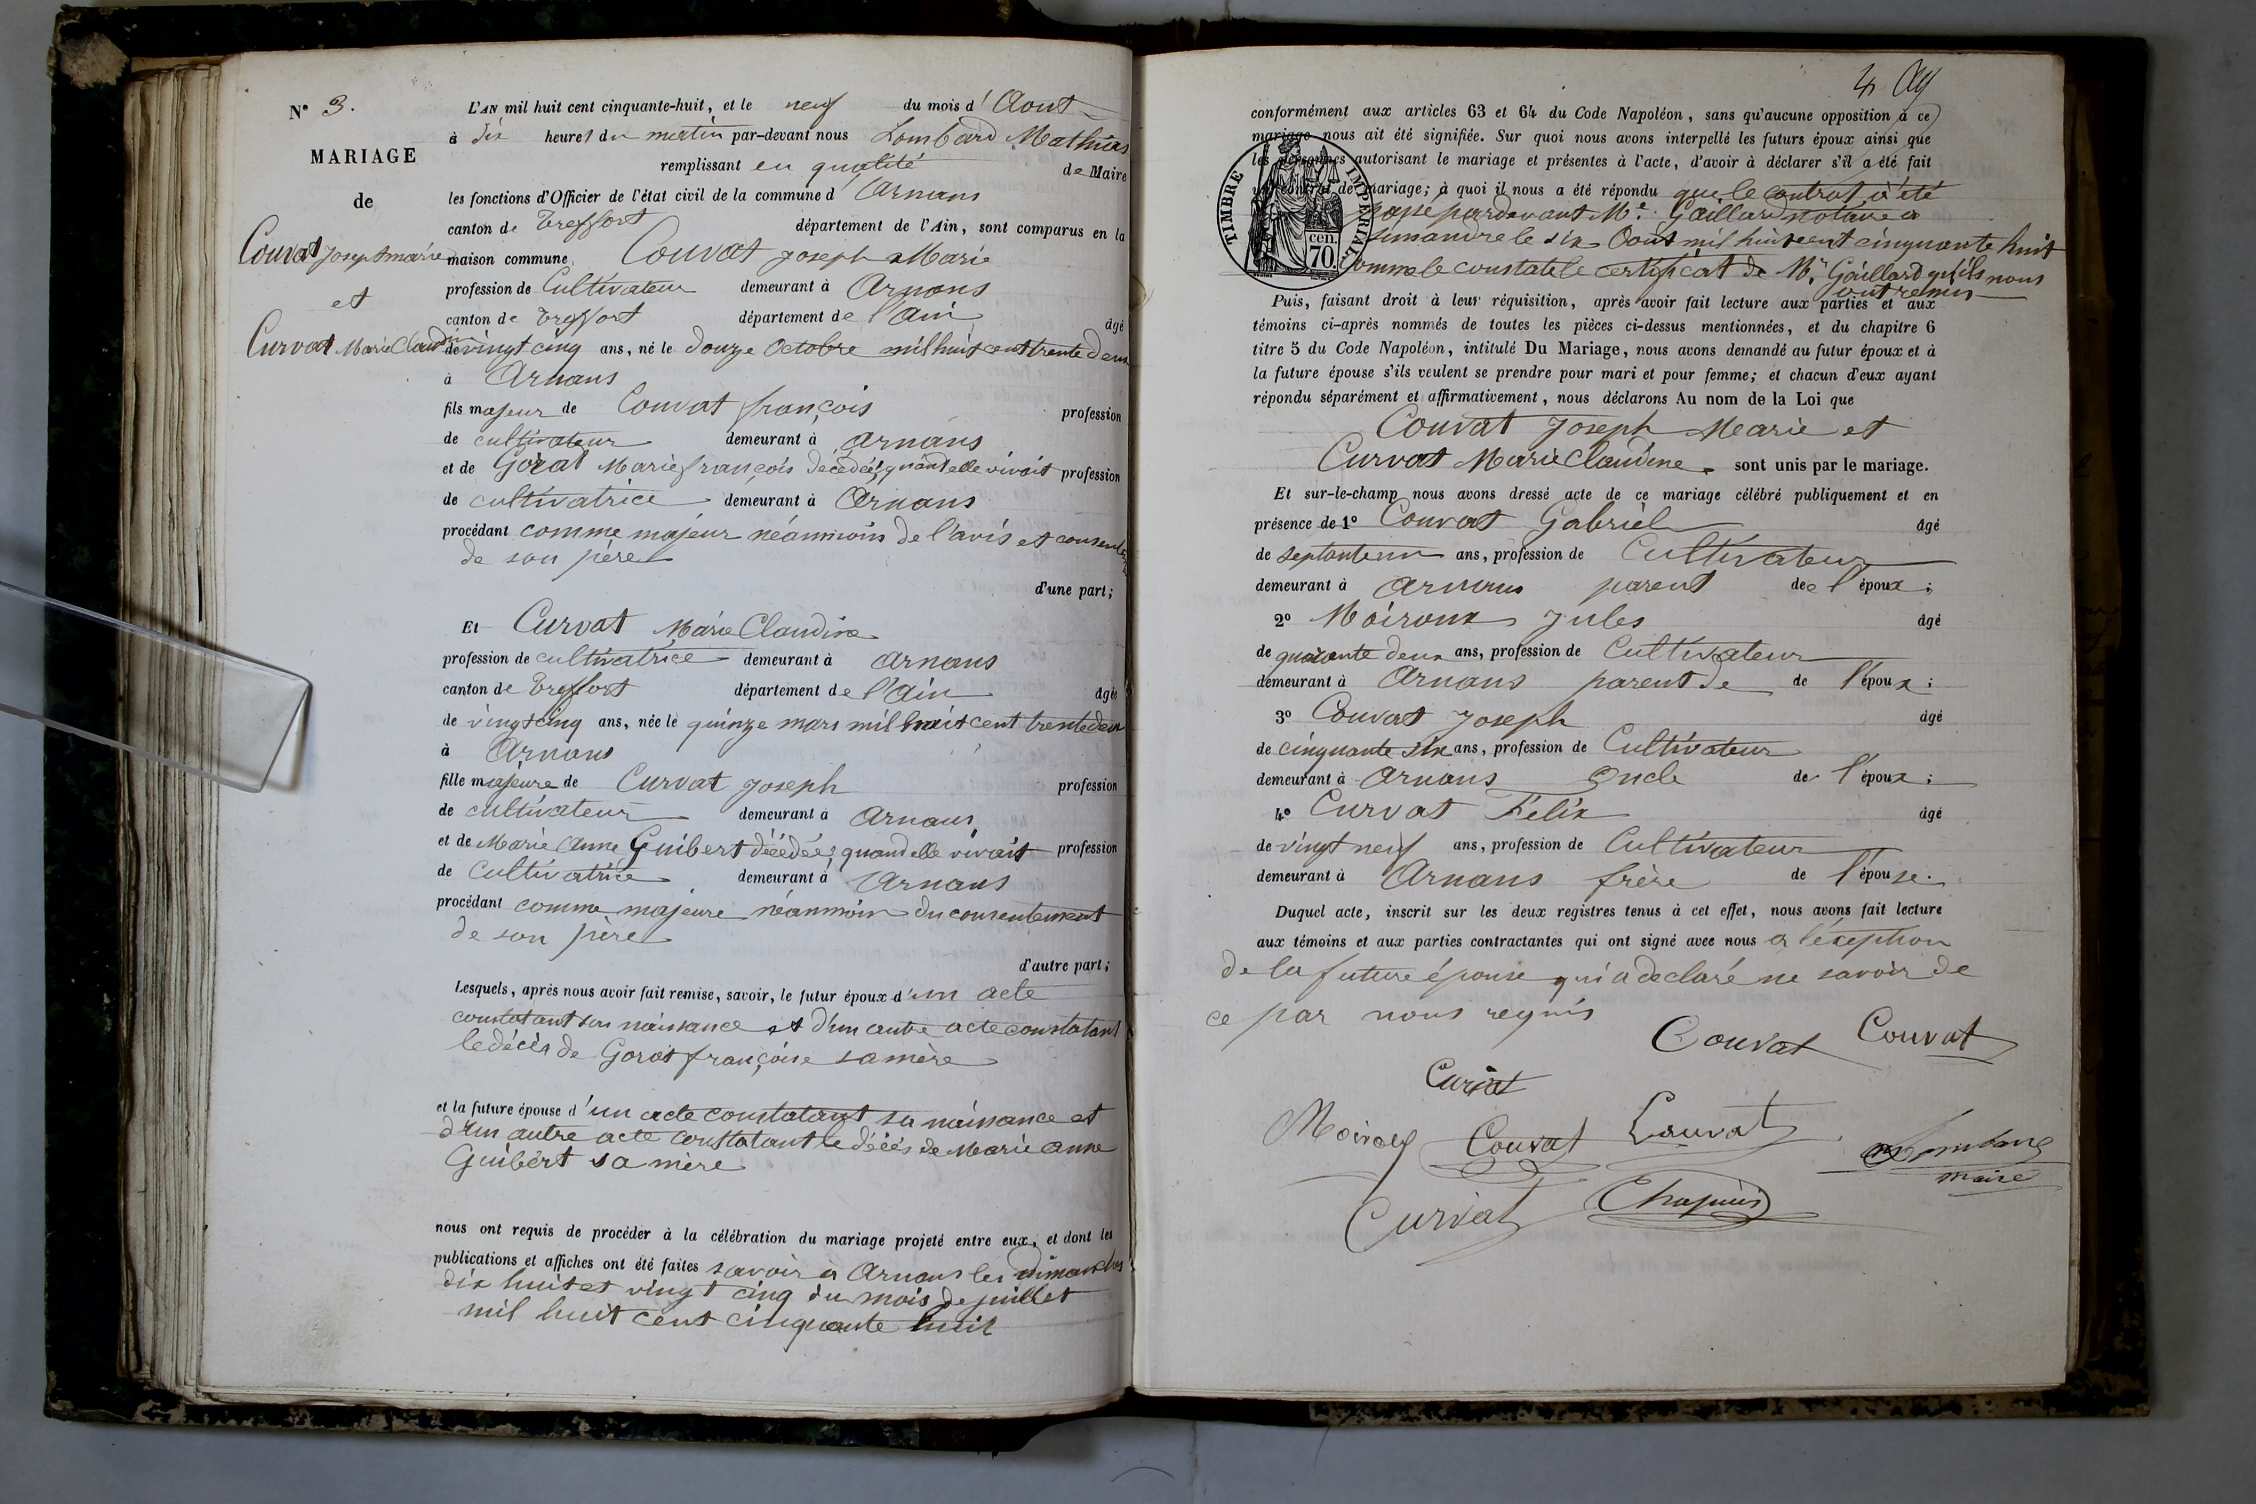 N° 3.
MARIAGE
de
Couvat Joseph marie
et
Curvat Marie Claudine
L'AN mil huit cent cinquante-huit, et le neuf du mois d'Aout
à dix heures du matin par-devant nous Lombard Mathias
remplissant en qualité de Maire
les fonctions d'Officier de l'état civil de la commune d'Arnans
canton de Treffort département de l'Ain, sont comparus en la
maison commune Couvat Joseph Marie
profession de Cultivateur demeurant à Arnans
canton de Treffort département de l'Ain âgé
de vingt cinq ans, né le douze Octobre mil huit cent trente deux
à Arnans
fils majeur de Couvat françois profession
de cultivateur demeurant à Arnans
et de Gorat Marie françois décédée, quand elle vivait profession
de cultivatrice demeurant à Arnans
procédant comme majeur néanmoins de l'avis et
de son père
d'une part;
Et Curvat Marie Claudine
profession de cultivatrice demeurant à Arnans
canton de Treffort département de l'Ain âgée
de vingt cinq ans, née le quinze mars mil huit cent trente deux
à Arnans
fille majeure de Curvat Joseph profession
de cultivateur demeurant à Arnans
et de Marie Anne Guibert décédée, quand elle vivait profession
de Cultivatrice demeurant à Arnans
procédant comme majeure néanmoin du consentement
de son père
d'autre part;
Lesquels, après nous avoir fait remise, savoir, le futur époux d'un acte
constatant sa naissance et d'un autre acte constatant
le décès de Gorat françoise sa mère
et la future épouse d'un acte constatant sa naissance et
d'un autre acte constatant le décés de Marie Anne
Guibert sa mère
nous ont requis de procéder à la célébration du mariage projeté entre eux, et dont les
publications et affiches ont été faites savoir à Arnans les dimanches
dix huit et vingt cinq du mois de juillet
mil huit cent cinquante huit
conformément aux articles 63 et 64 du Code Napoléon, sans qu'aucune opposition à ce
mariage nous ait été signifiée. Sur quoi nous avons interpellé les futurs époux ainsi que
les personnes autorisant le mariage et présentes à l'acte, d'avoir à déclarer s'il a été fait
un contrat de mariage; à quoi il nous a été répondu que le contrat à été
passé pardevant Me. Gaillard notaire à
Simandre le six Aout mil huit cent cinquante huit
comme le constate le certificat de Mr. Gaillard qu'ils nous
ont remis
TIMBRE IMPERIAL
cen.
70.
Puis, faisant droit à leur réquisition, après avoir fait lecture aux parties et aux
témoins ci-après nommés de toutes les pièces ci-dessus mentionnées, et du chapitre 6
titre 5 du Code Napoléon, intitulé Du Mariage, nous avons demandé au futur époux et à
la future épouse s'ils veulent se prendre pour mari et pour femme; et chacun d'eux ayant
répondu séparément et affirmativement, nous déclarons Au nom de la Loi que
Couvat Joseph Marie et
Curvat Marie Claudine. sont unis par le mariage.
Et sur-le-champ nous avons dressé acte de ce mariage célébré publiquement et en
présence de 1° Couvat Gabriel âgé
de septante un ans, profession de Cultivateur
demeurant à Arnans parent de l'époux;
2° Moiroux Jules âgé
de quarante deux ans, profession de Cultivateur
demeurant à Arnans parent de de l'époux;
3° Couvat Joseph âgé
de cinquante six ans, profession de Cultivateur
demeurant à Arnans Oncle de l'époux;
4° Curvat Félix âgé
de vingt neuf ans, profession de Cultivateur
demeurant à Arnans frère de l'épouse.
Duquel acte, inscrit sur les deux registres tenus à cet effet, nous avons fait lecture
aux témoins et aux parties contractantes qui ont signé avec nous à l'éxeption
de la future épouse qui a declaré ne savoir de
ce par nous requis
Couvat Couvat
Curvat
Couvat Couvat
maire
Curvat Chapuis